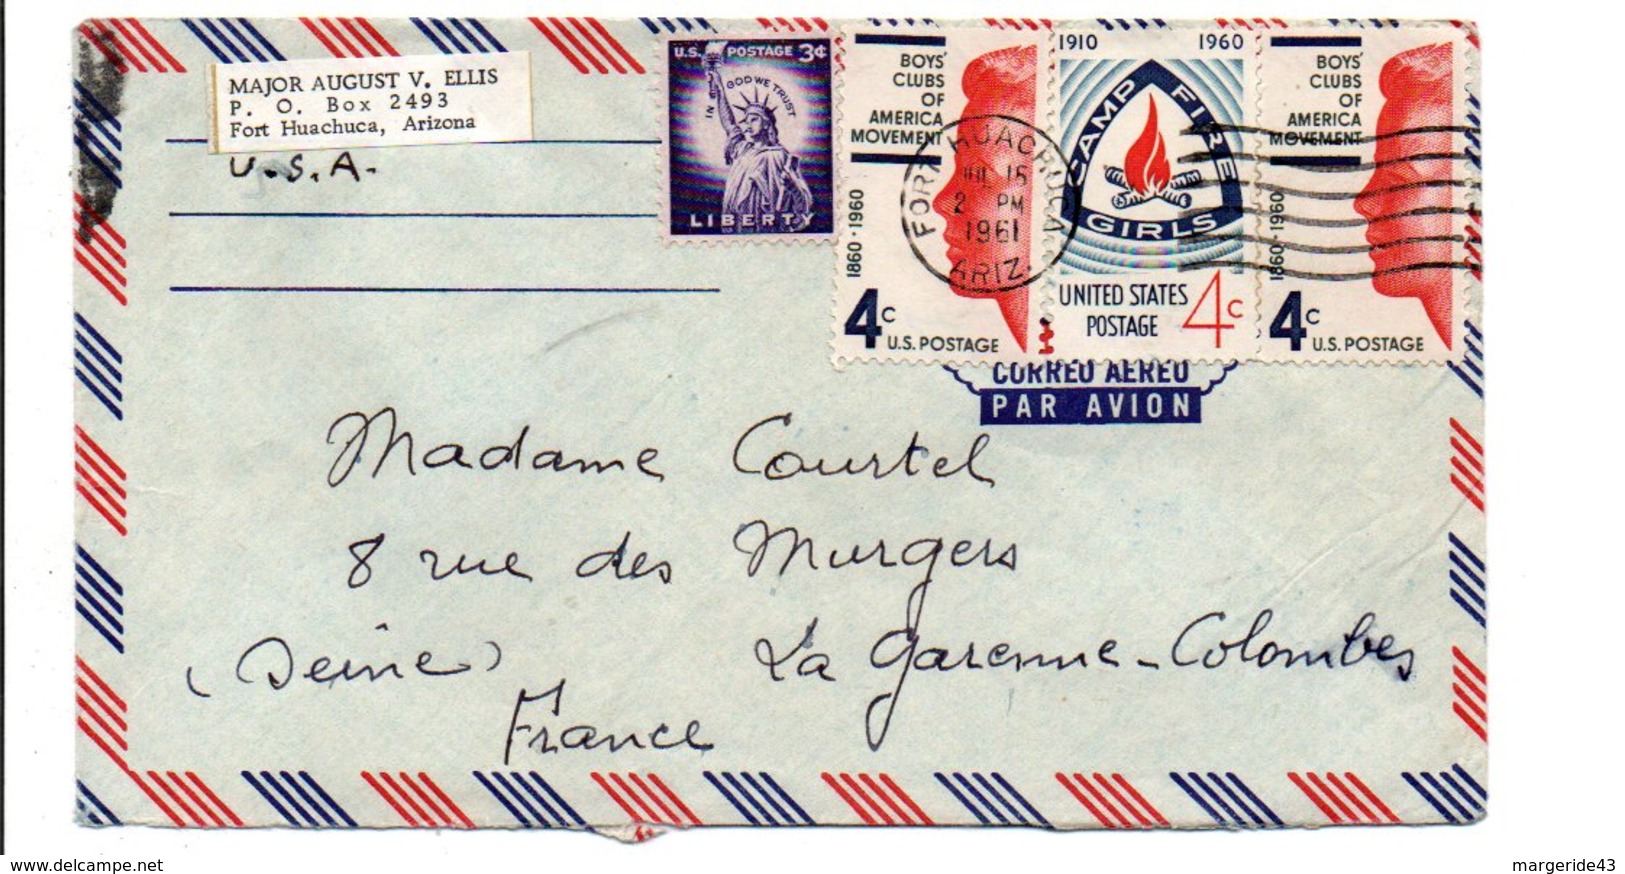 MAJOR AUGUST V. ELLIS
P. O. Box 2493
Fort Huachuca, Arizona
U.S.A.
U.S. POSTAGE 3¢
IN GOD WE TRUST
LIBERTY
BOYS'
CLUBS
OF
AMERICA
MOVEMENT
1860·1960
4c
U.S. POSTAGE
FORT HUACHUCA
JUL 15
2 PM
1961
ARIZ.
1910 1960
CAMP FIRE
GIRLS
UNITED STATES
POSTAGE 4c
BOYS'
CLUBS
OF
AMERICA
MOVEMENT
1860·1960
4c
U.S. POSTAGE
CORREO AEREO
PAR AVION
Madame Courtel
8 rue des Murgers
La Garenne-Colombes
(Seine)
France
www.delcampe.net
margeride43